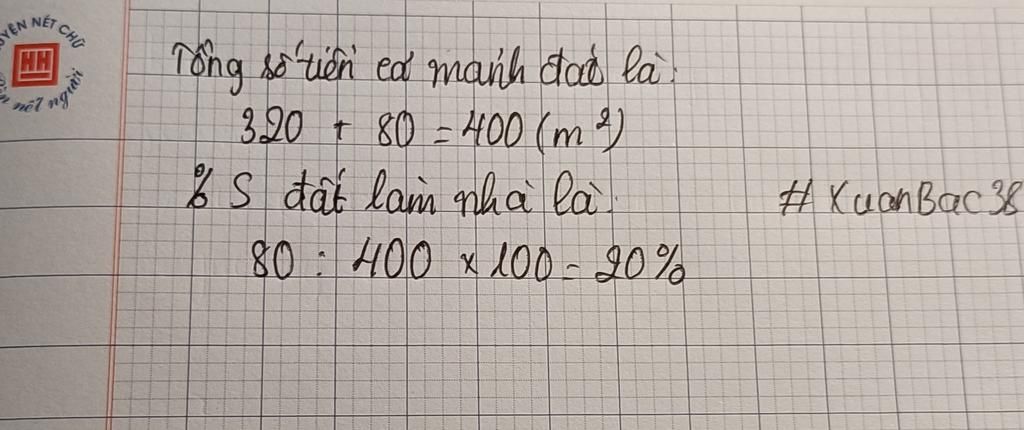 UYỆN NÉT CHỮ
HH
nết người
Tổng số tiền cả mảnh đất là:
320 + 80 = 400 (m²)
% S đất làm nhà là:
#XuanBac38
80 : 400 x 100 = 20%